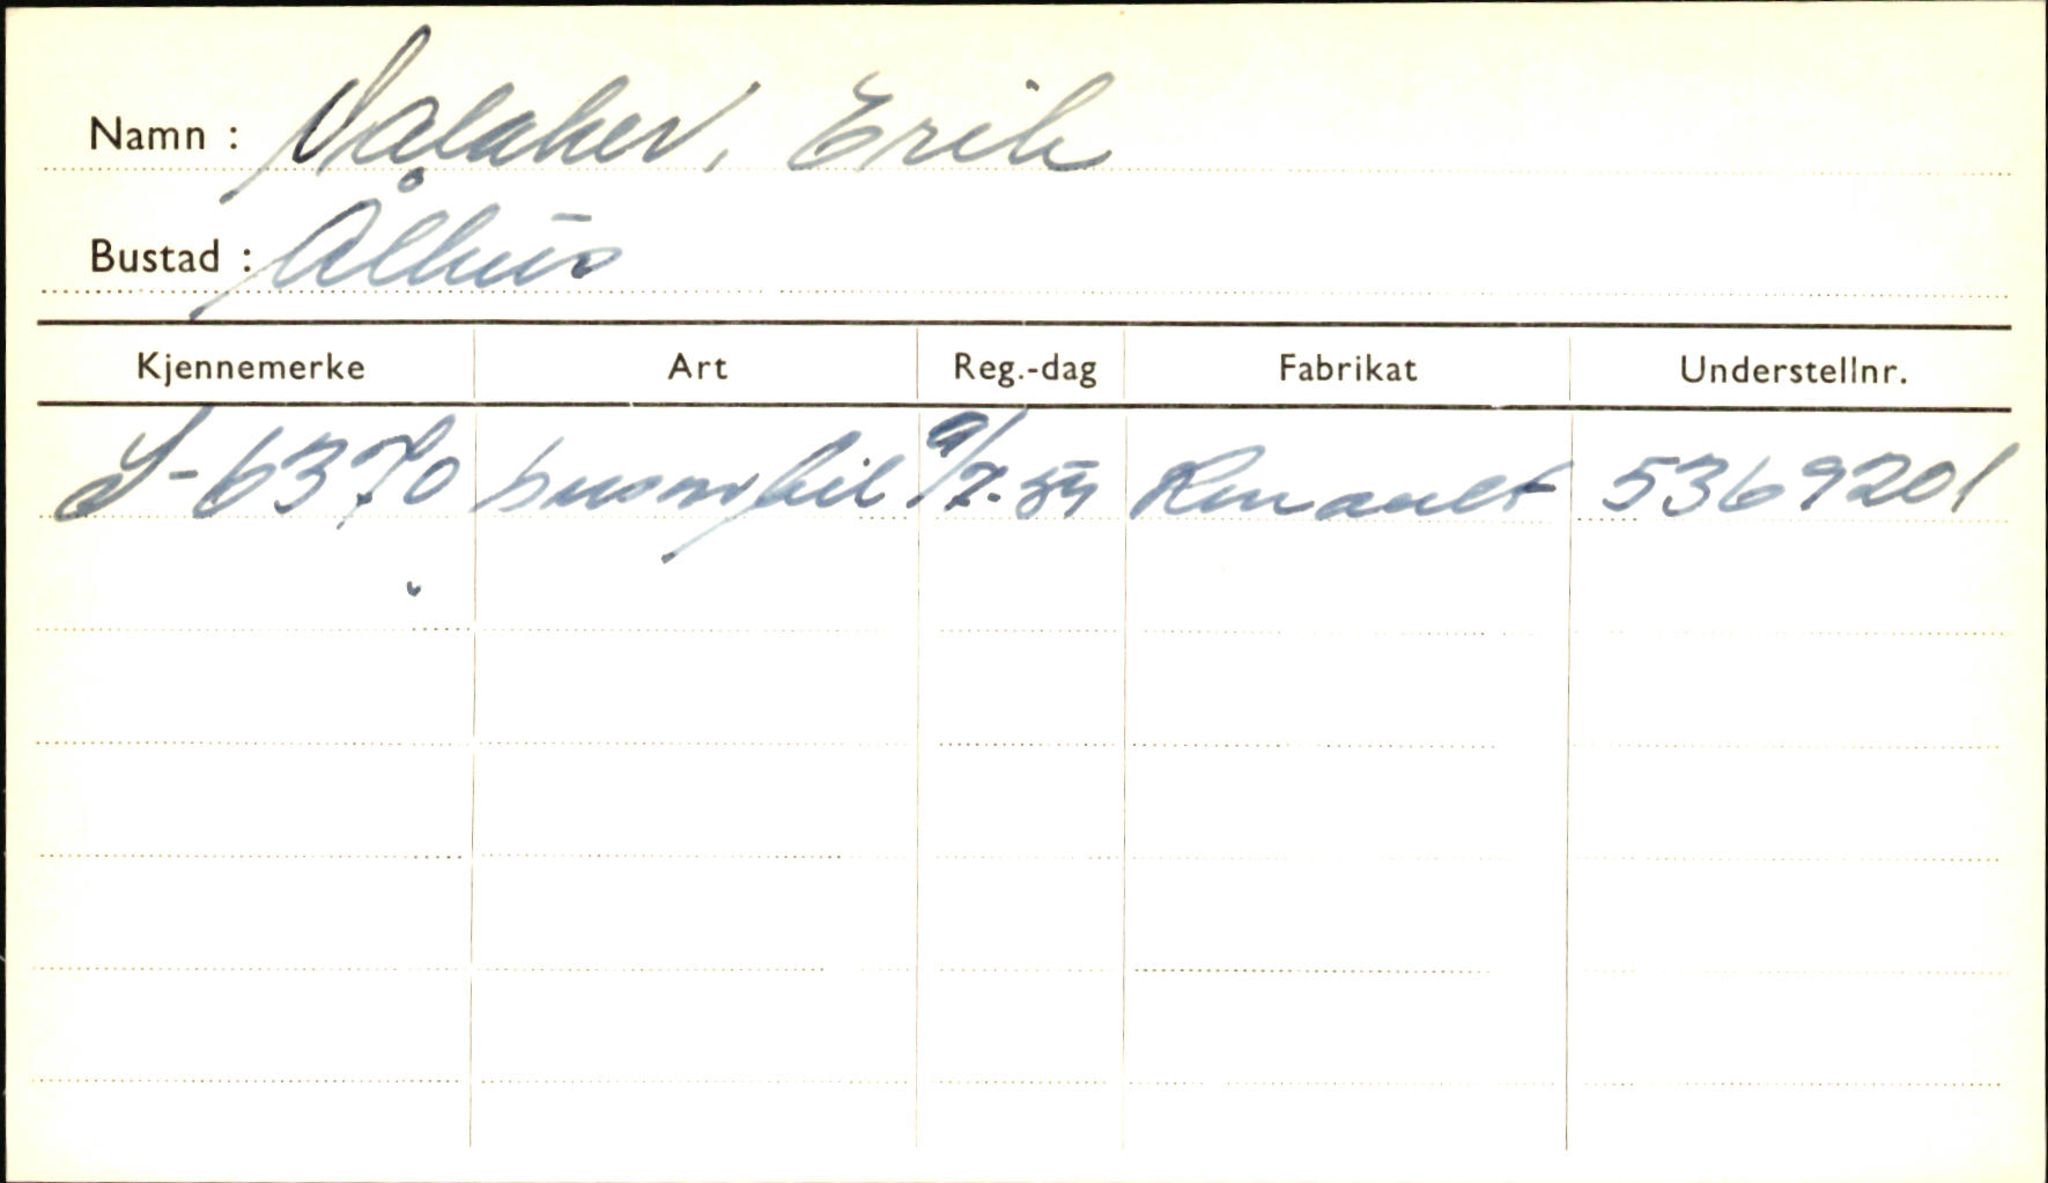 Namn : Nalaker, Erik
Bustad : Ålhus
Kjennemerke Art Reg.-dag Fabrikat Understellnr.
S-6370 personbil 9/7-59 Renault 5369201